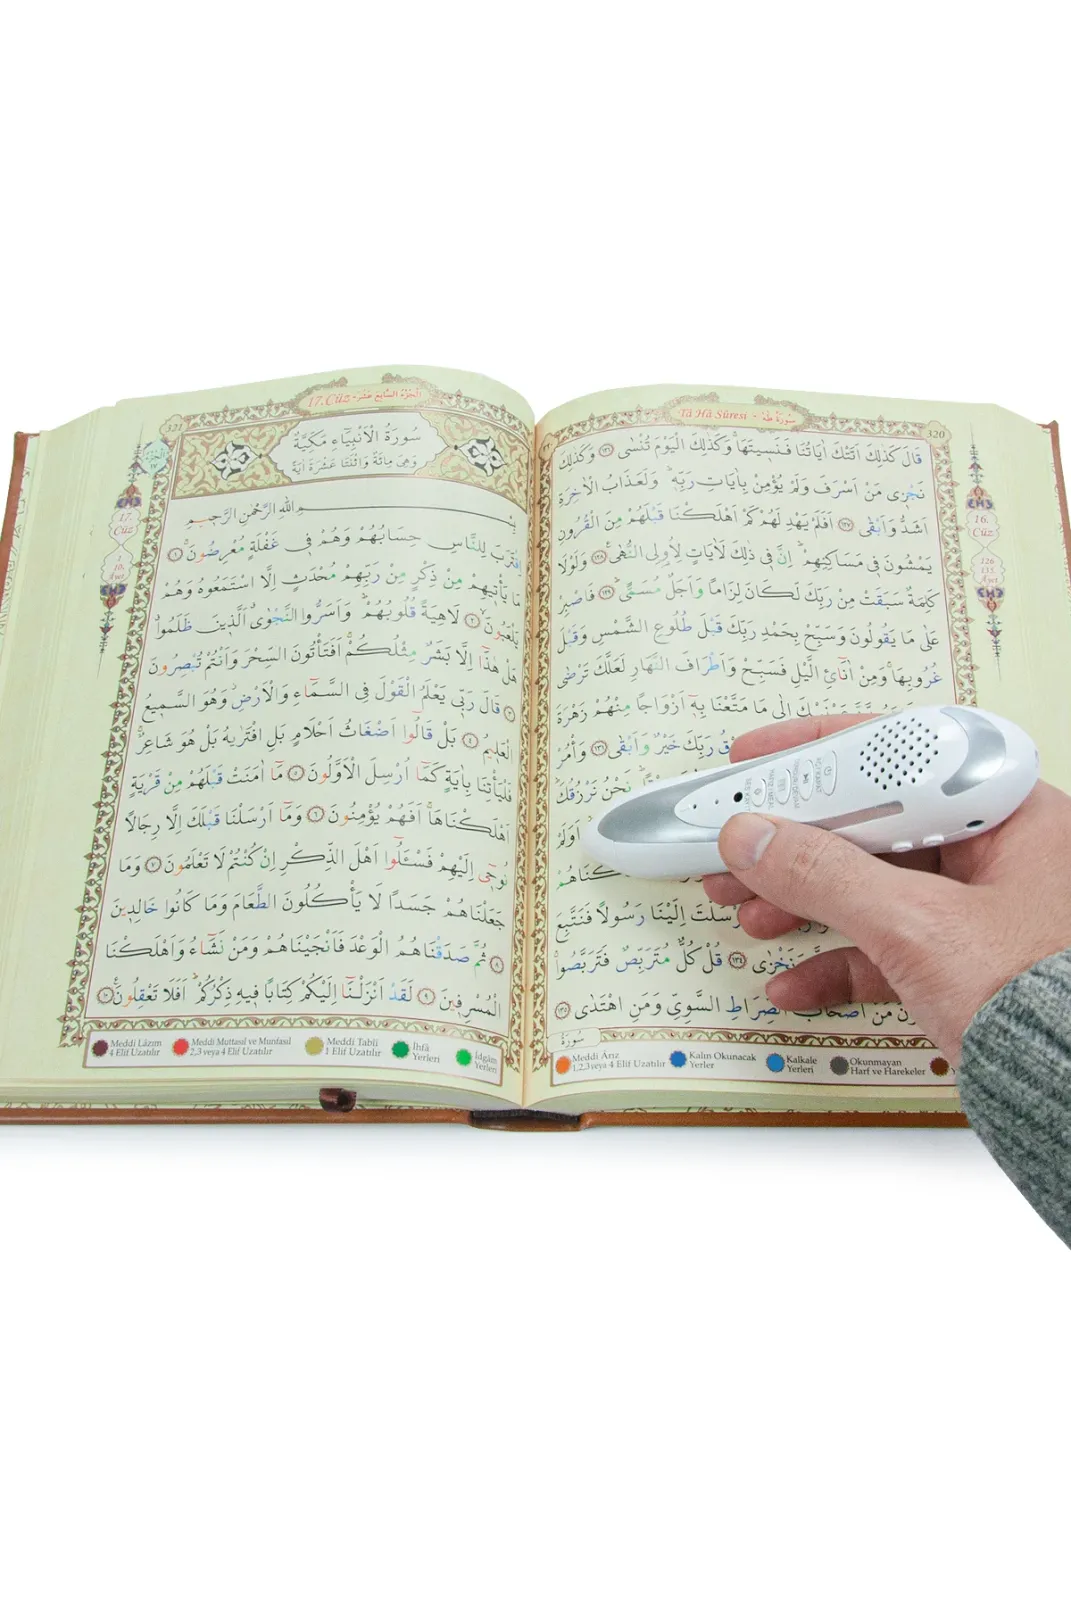 Tâ Hâ Sûresi - سُورَةُ طٰهٰ
320
قَالَ كَذٰلِكَ اَتَتْكَ اٰيَاتُنَا فَنَسٖيتَهَا وَكَذٰلِكَ الْيَوْمَ تُنْسٰى ١٢٦ وَكَذٰلِكَ
نَجْزٖى مَنْ اَسْرَفَ وَلَمْ يُؤْمِنْ بِاٰيَاتِ رَبِّهٖ وَلَعَذَابُ الْاٰخِرَةِ
اَشَدُّ وَاَبْقٰى ١٢٧ اَفَلَمْ يَهْدِ لَهُمْ كَمْ اَهْلَكْنَا قَبْلَهُمْ مِنَ الْقُرُونِ
يَمْشُونَ فٖى مَسَاكِنِهِمْ اِنَّ فٖى ذٰلِكَ لَاٰيَاتٍ لِاُولِى النُّهٰى ١٢٨ وَلَوْلَا
كَلِمَةٌ سَبَقَتْ مِنْ رَبِّكَ لَكَانَ لِزَامًا وَاَجَلٌ مُسَمًّى ١٢٩ فَاصْبِرْ
عَلٰى مَا يَقُولُونَ وَسَبِّحْ بِحَمْدِ رَبِّكَ قَبْلَ طُلُوعِ الشَّمْسِ وَقَبْلَ
غُرُوبِهَا وَمِنْ اٰنَآئِ الَّيْلِ فَسَبِّحْ وَاَطْرَافَ النَّهَارِ لَعَلَّكَ تَرْضٰى
اِلٰى مَا مَتَّعْنَا بِهٖٓ اَزْوَاجًا مِنْهُمْ زَهْرَةَ
رَبِّكَ خَيْرٌ وَاَبْقٰى ١٣١ وَأْمُرْ
نَحْنُ نَرْزُقُكَ
اَوَلَمْ
اِلَيْنَا رَسُولًا فَنَتَّبِعَ
وَنَخْزٰى ١٣٤ قُلْ كُلٌّ مُتَرَبِّصٌ فَتَرَبَّصُوا
مَنْ اَصْحَابُ الصِّرَاطِ السَّوِيِّ وَمَنِ اهْتَدٰى ١٣٥
سُورَةُ
16.
Cüz
126
135.
Âyet
Meddi Ârız
1,2,3 veya 4 Elif Uzatılır
Kalın Okunacak
Yerler
Kalkale
Yerleri
Okunmayan
Harf ve Harekeler
17.Cüz - اَلْجُزْءُ السَّابِعَ عَشَرَ
321
سُورَةُ الْاَنْبِيَآءِ مَكِّيَّةٌ
وَهِىَ مِائَةٌ وَاثْنَتَا عَشْرَةَ اٰيَةً
بِسْمِ اللّٰهِ الرَّحْمٰنِ الرَّحٖيمِ
اِقْتَرَبَ لِلنَّاسِ حِسَابُهُمْ وَهُمْ فٖى غَفْلَةٍ مُعْرِضُونَ ١
مَا يَأْتٖيهِمْ مِنْ ذِكْرٍ مِنْ رَبِّهِمْ مُحْدَثٍ اِلَّا اسْتَمَعُوهُ وَهُمْ
يَلْعَبُونَ ٢ لَاهِيَةً قُلُوبُهُمْ وَاَسَرُّوا النَّجْوَى الَّذٖينَ ظَلَمُوا
هَلْ هٰذَٓا اِلَّا بَشَرٌ مِثْلُكُمْ اَفَتَأْتُونَ السِّحْرَ وَاَنْتُمْ تُبْصِرُونَ
٣ قَالَ رَبّٖى يَعْلَمُ الْقَوْلَ فِى السَّمَآءِ وَالْاَرْضِ وَهُوَ السَّمٖيعُ
الْعَلٖيمُ ٤ بَلْ قَالُٓوا اَضْغَاثُ اَحْلَامٍ بَلِ افْتَرٰيهُ بَلْ هُوَ شَاعِرٌ
فَلْيَأْتِنَا بِاٰيَةٍ كَمَٓا اُرْسِلَ الْاَوَّلُونَ ٥ مَٓا اٰمَنَتْ قَبْلَهُمْ مِنْ قَرْيَةٍ
اَهْلَكْنَاهَا اَفَهُمْ يُؤْمِنُونَ ٦ وَمَٓا اَرْسَلْنَا قَبْلَكَ اِلَّا رِجَالًا
نُوحٖٓى اِلَيْهِمْ فَسْـَٔلُٓوا اَهْلَ الذِّكْرِ اِنْ كُنْتُمْ لَا تَعْلَمُونَ ٧ وَمَا
جَعَلْنَاهُمْ جَسَدًا لَا يَأْكُلُونَ الطَّعَامَ وَمَا كَانُوا خَالِدٖينَ
٨ ثُمَّ صَدَقْنَاهُمُ الْوَعْدَ فَاَنْجَيْنَاهُمْ وَمَنْ نَشَآءُ وَاَهْلَكْنَا
الْمُسْرِفٖينَ ٩ لَقَدْ اَنْزَلْنَٓا اِلَيْكُمْ كِتَابًا فٖيهِ ذِكْرُكُمْ اَفَلَا تَعْقِلُونَ ١٠
17.
Cüz
1
10.
Âyet
Meddi Lâzım
4 Elif Uzatılır
Meddi Muttasıl ve Munfasıl
2,3 veya 4 Elif Uzatılır
Meddi Tabîî
1 Elif Uzatılır
İhfâ
Yerleri
İdgâm
Yerleri